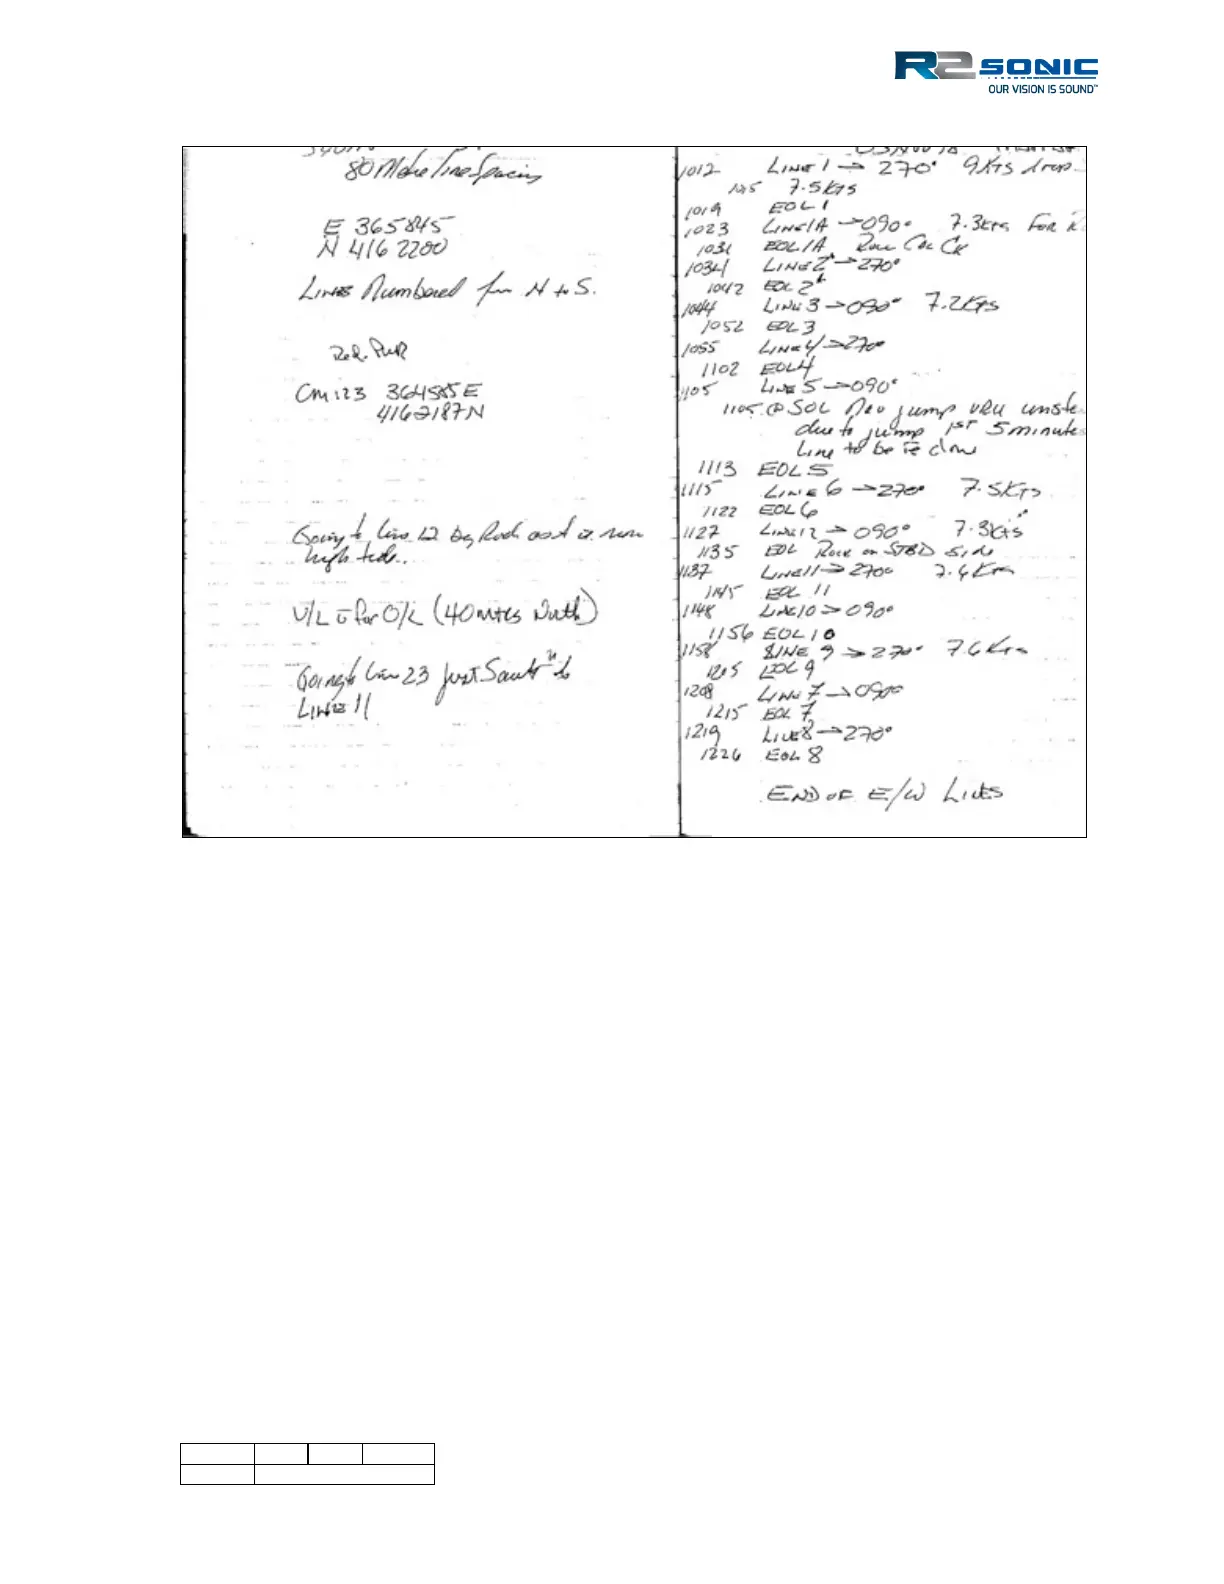 R2SONIC
OUR VISION IS SOUND™
80 Metre Line Spacing
E 365845
N 4162200
LINES Numbered from N to S.
Cm 123 364585 E
4162187 N
Going to Line 12 by Rock
high tide..
V/L for O/L (40 mtrs North)
Going to Line 23 Just South to
LINE 11
1012 LINE 1 → 270° 9 KTS drop
7.5 KTS
1019 EOL 1
1023 LINE 1A → 090° 7.3 KTS FOR
1031 EOL 1A Roll Cal CK
1034 LINE 2 → 270°
1042 EOL 2
1044 LINE 3 → 090° 7.2 KTS
1052 EOL 3
1055 LINE 4 → 270°
1102 EOL 4
1105 LINE 5 → 090°
1105 @ SOL Nav jump VRU unste
due to jump 1ST 5 minutes
Line to be re done
1113 EOL 5
1115 LINE 6 → 270° 7.5 KTS
1122 EOL 6
1127 LINE 12 → 090° 7.3 KTS
1135 EOL Rock on STBD Side
1137 LINE 11 → 270° 7.4 KTS
1145 EOL 11
1148 LINE 10 → 090°
1156 EOL 10
1158 LINE 9 → 270° 7.6 KTS
1205 EOL 9
1208 LINE 7 → 090°
1215 EOL 7
1219 LINE 8 → 270°
1226 EOL 8
END OF E/W LINES